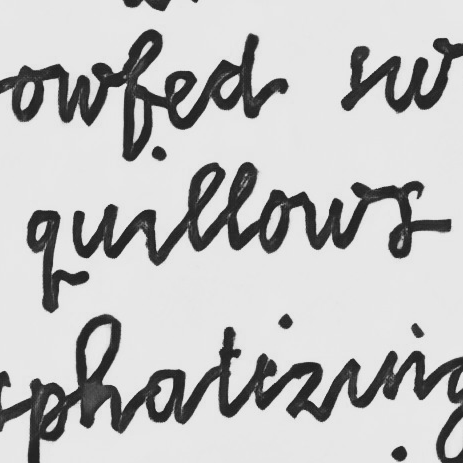 owfed sw
quillows
sphatizing